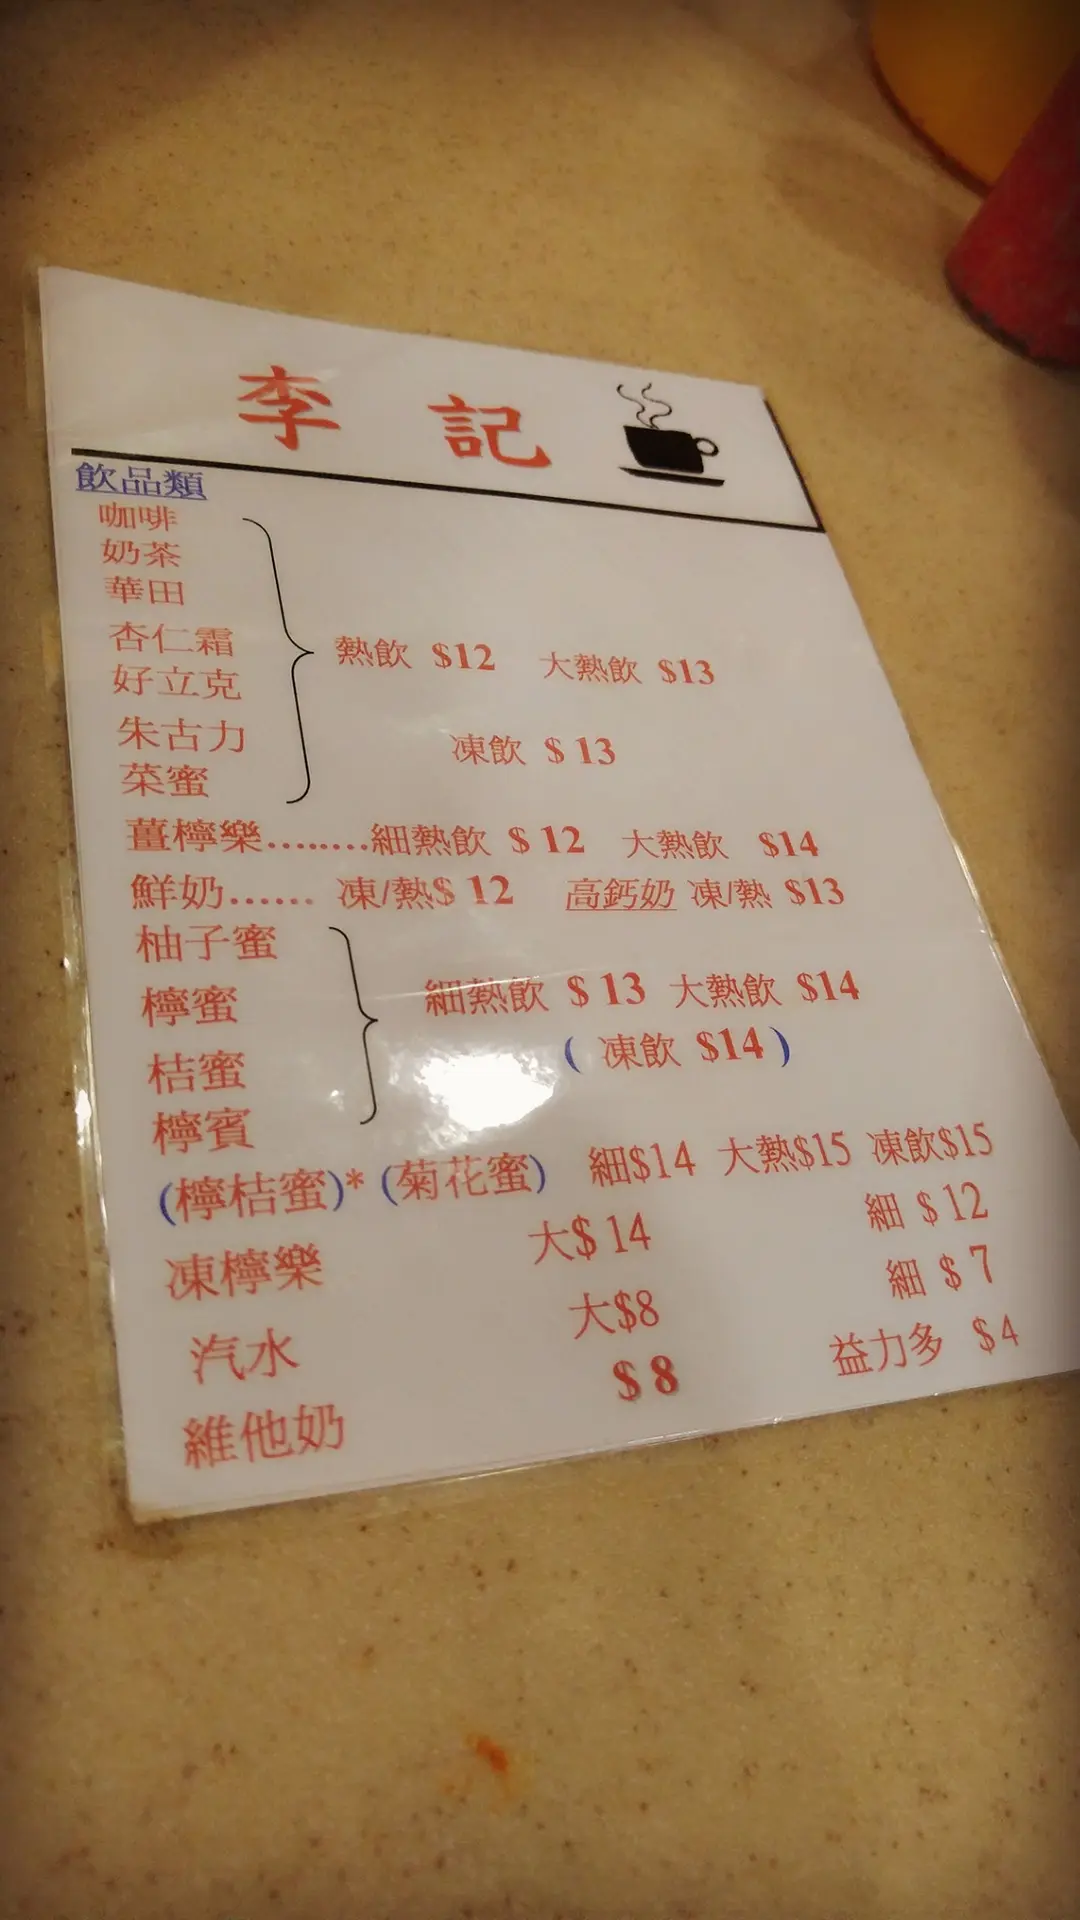 李 記
飲品類
咖啡
奶茶
華田
杏仁霜
好立克
熱飲 $12 大熱飲 $13
朱古力
凍飲 $ 13
菜蜜
薑檸樂.........細熱飲 $ 12 大熱飲 $14
鮮奶...... 凍/熱$ 12 高鈣奶 凍/熱 $13
柚子蜜
檸蜜
細熱飲 $ 13 大熱飲 $14
桔蜜
( 凍飲 $14 )
檸賓
(檸桔蜜)* (菊花蜜) 細$14 大熱$15 凍飲$15
凍檸樂 大$ 14 細 $ 12
汽水 大$8 細 $ 7
維他奶 $ 8 益力多 $ 4